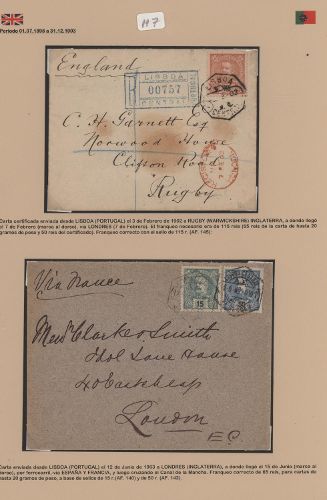 H7
Periodo 01.07.1898 a 31.12.1903
England
LISBOA
00757
CENTRAL
C. H. Garnett Esq
Norwood House
Clifton Road
Rugby
Carta certificada enviada desde LISBOA (PORTUGAL) el 3 de Febrero de 1902 a RUGBY (WARWICKSHIRE) INGLATERRA, a donde llegó
el 7 de Febrero (marca al dorso), vía LONDRES (7 de Febrero). El franqueo necesario era de 115 reis (65 reis de la carta de hasta 20
gramos de peso y 50 reis del certificado). Franqueo correcto con el sello de 115 r. (AF. 145):
Via France
Mess Clarke & Smith
Idol Lane House
40 Eastcheap
London
E.C.
Carta enviada desde LISBOA (PORTUGAL) el 12 de Junio de 1903 a LONDRES (INGLATERRA), a donde llegó el 15 de Junio (marca al
dorso), por ferrocarril, vía ESPAÑA Y FRANCIA, y luego cruzando el Canal de la Mancha. Franqueo correcto de 65 reis, para cartas de
hasta 20 gramos de peso, a base de sellos de 15 r (AF. 140) y de 50 r. (AF. 143).